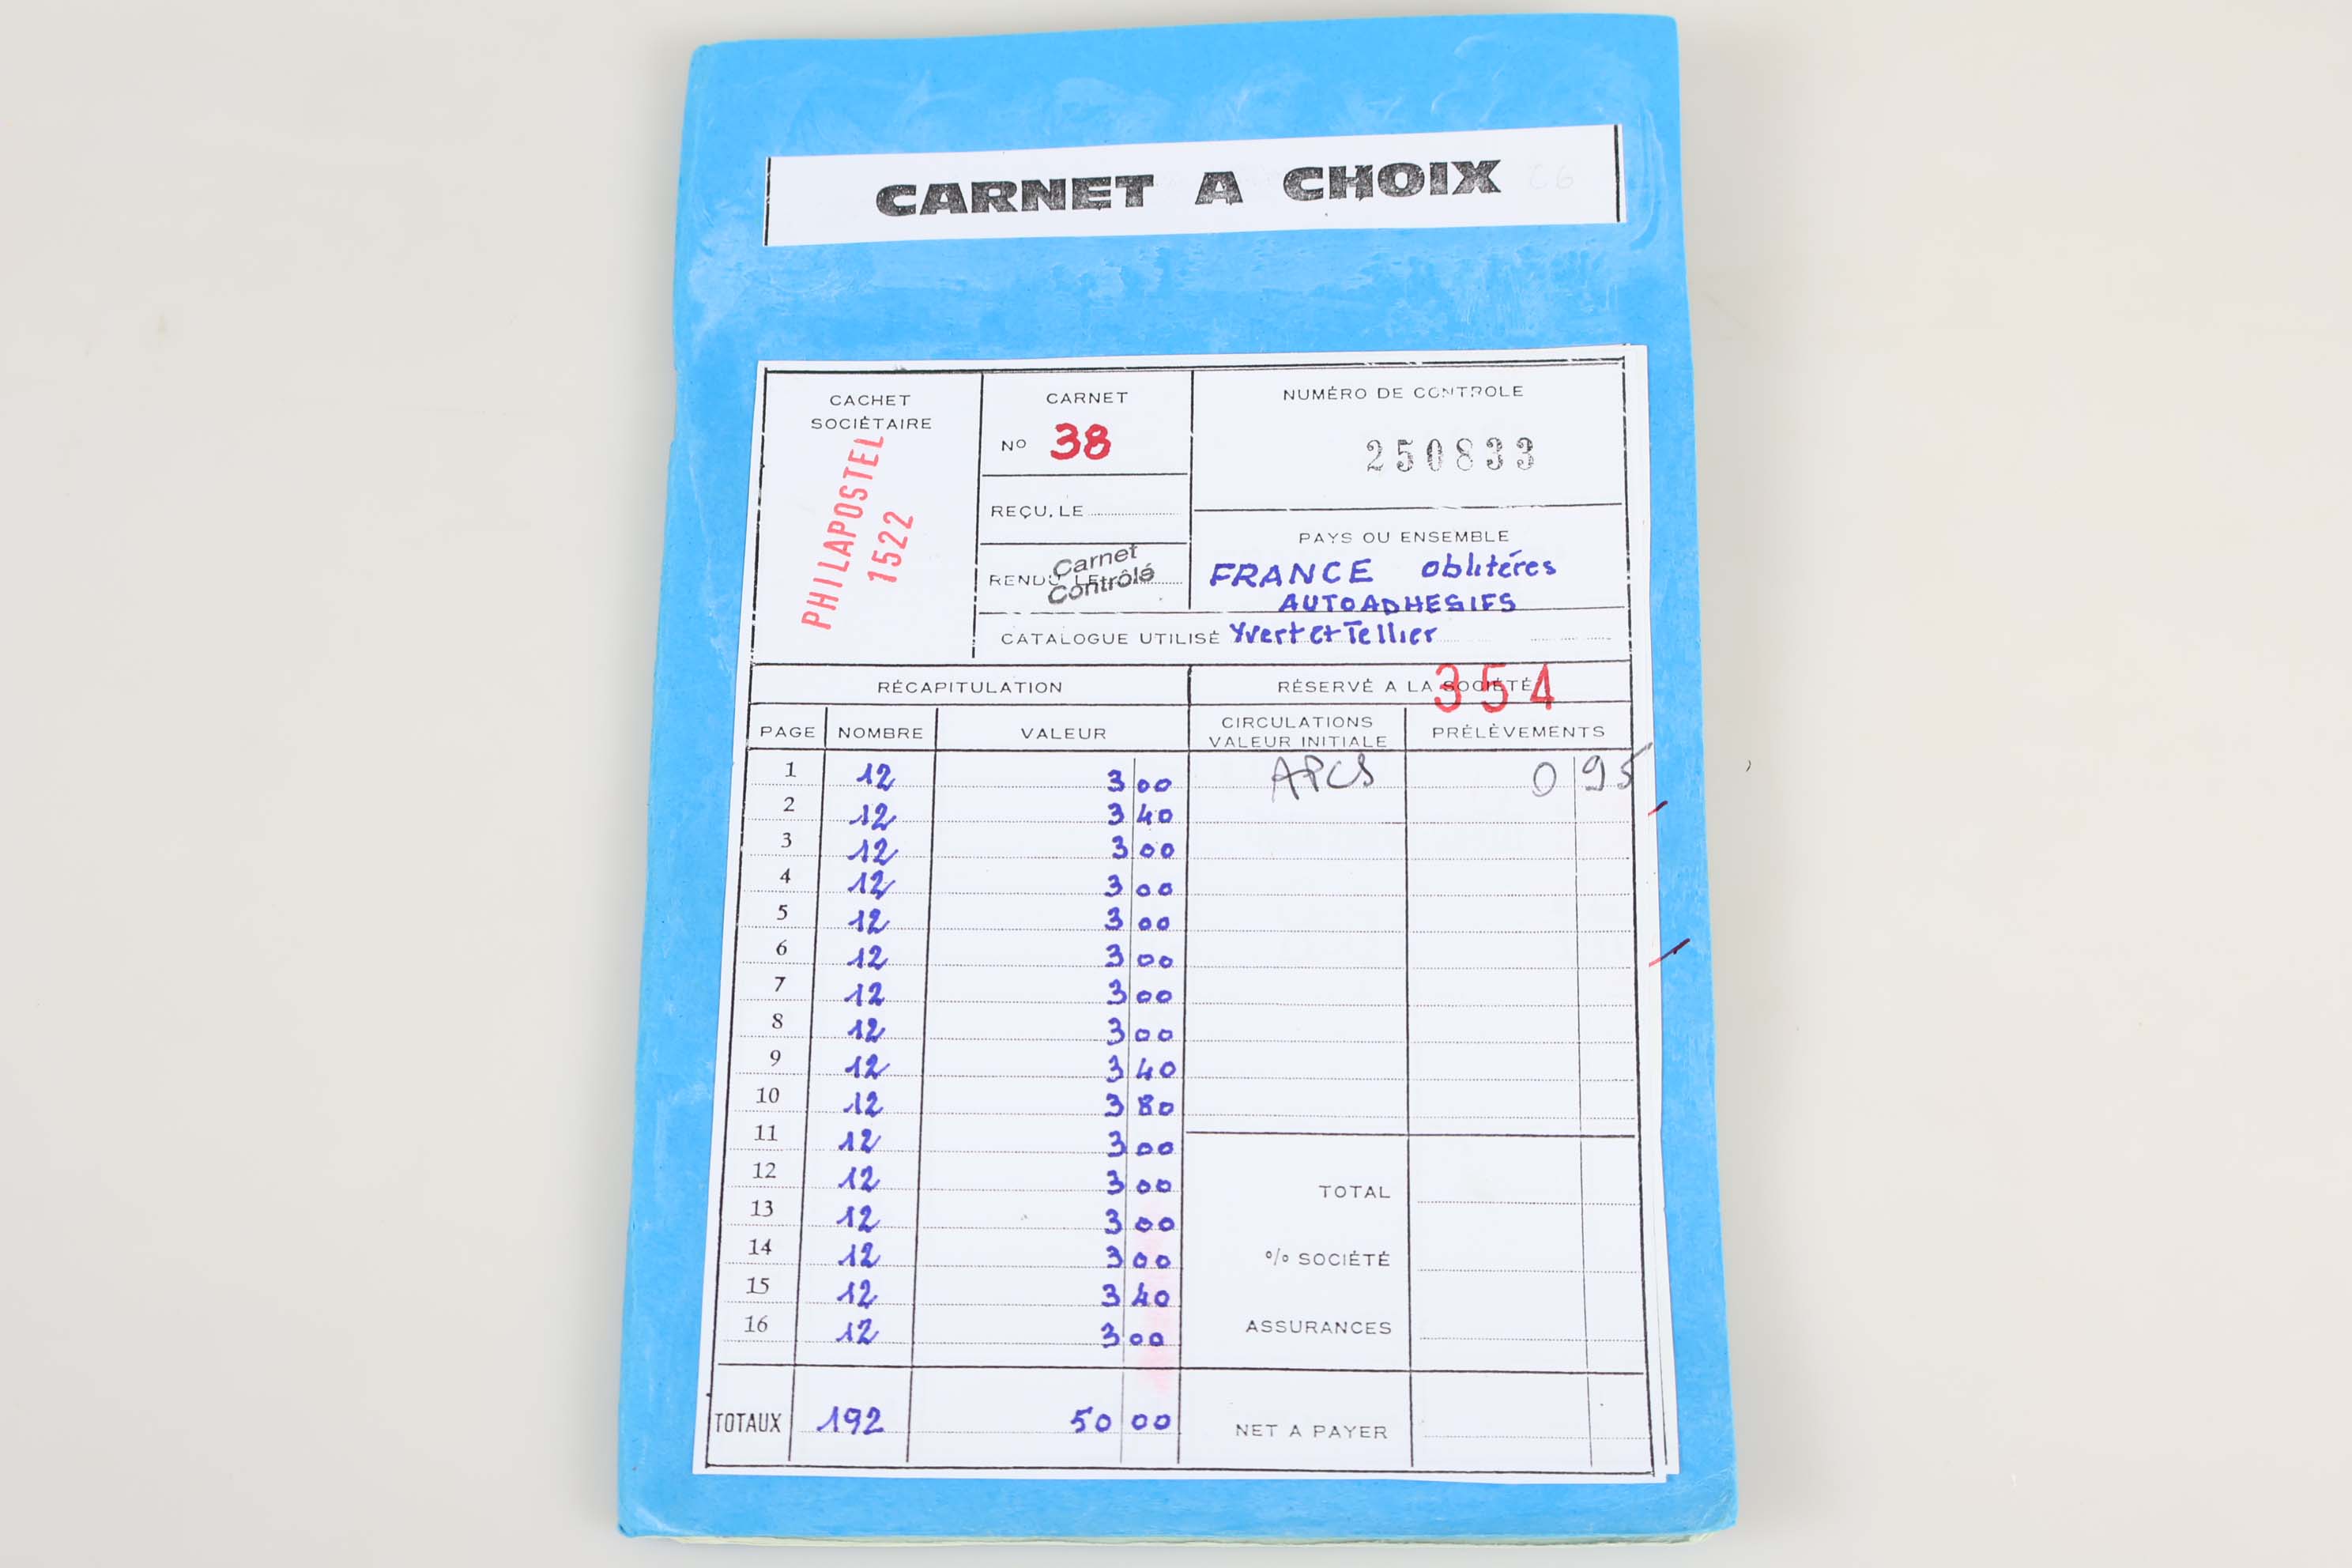 CARNET A CHOIX
CACHET
SOCIÉTAIRE
PHILAPOSTEL
1522
CARNET
Nº 38
REÇU, LE
RENDU LE
Carnet
Contrôlé
NUMÉRO DE CONTROLE
250833
PAYS OU ENSEMBLE
FRANCE oblitéres
AUTOADHESIFS
CATALOGUE UTILISÉ Yvert et Tellier
RÉCAPITULATION
RÉSERVÉ A LA SOCIÉTÉ
354
PAGE NOMBRE VALEUR
CIRCULATIONS
VALEUR INITIALE
PRÉLÈVEMENTS
1 12 3 00 APCS 0 95
2 12 3 40
3 12 3 00
4 12 3 00
5 12 3 00
6 12 3 00
7 12 3 00
8 12 3 00
9 12 3 40
10 12 3 80
11 12 3 00
12 12 3 00
13 12 3 00
14 12 3 00
15 12 3 40
16 12 3 00
TOTAL
% SOCIÉTÉ
ASSURANCES
TOTAUX 192 50 00
NET A PAYER